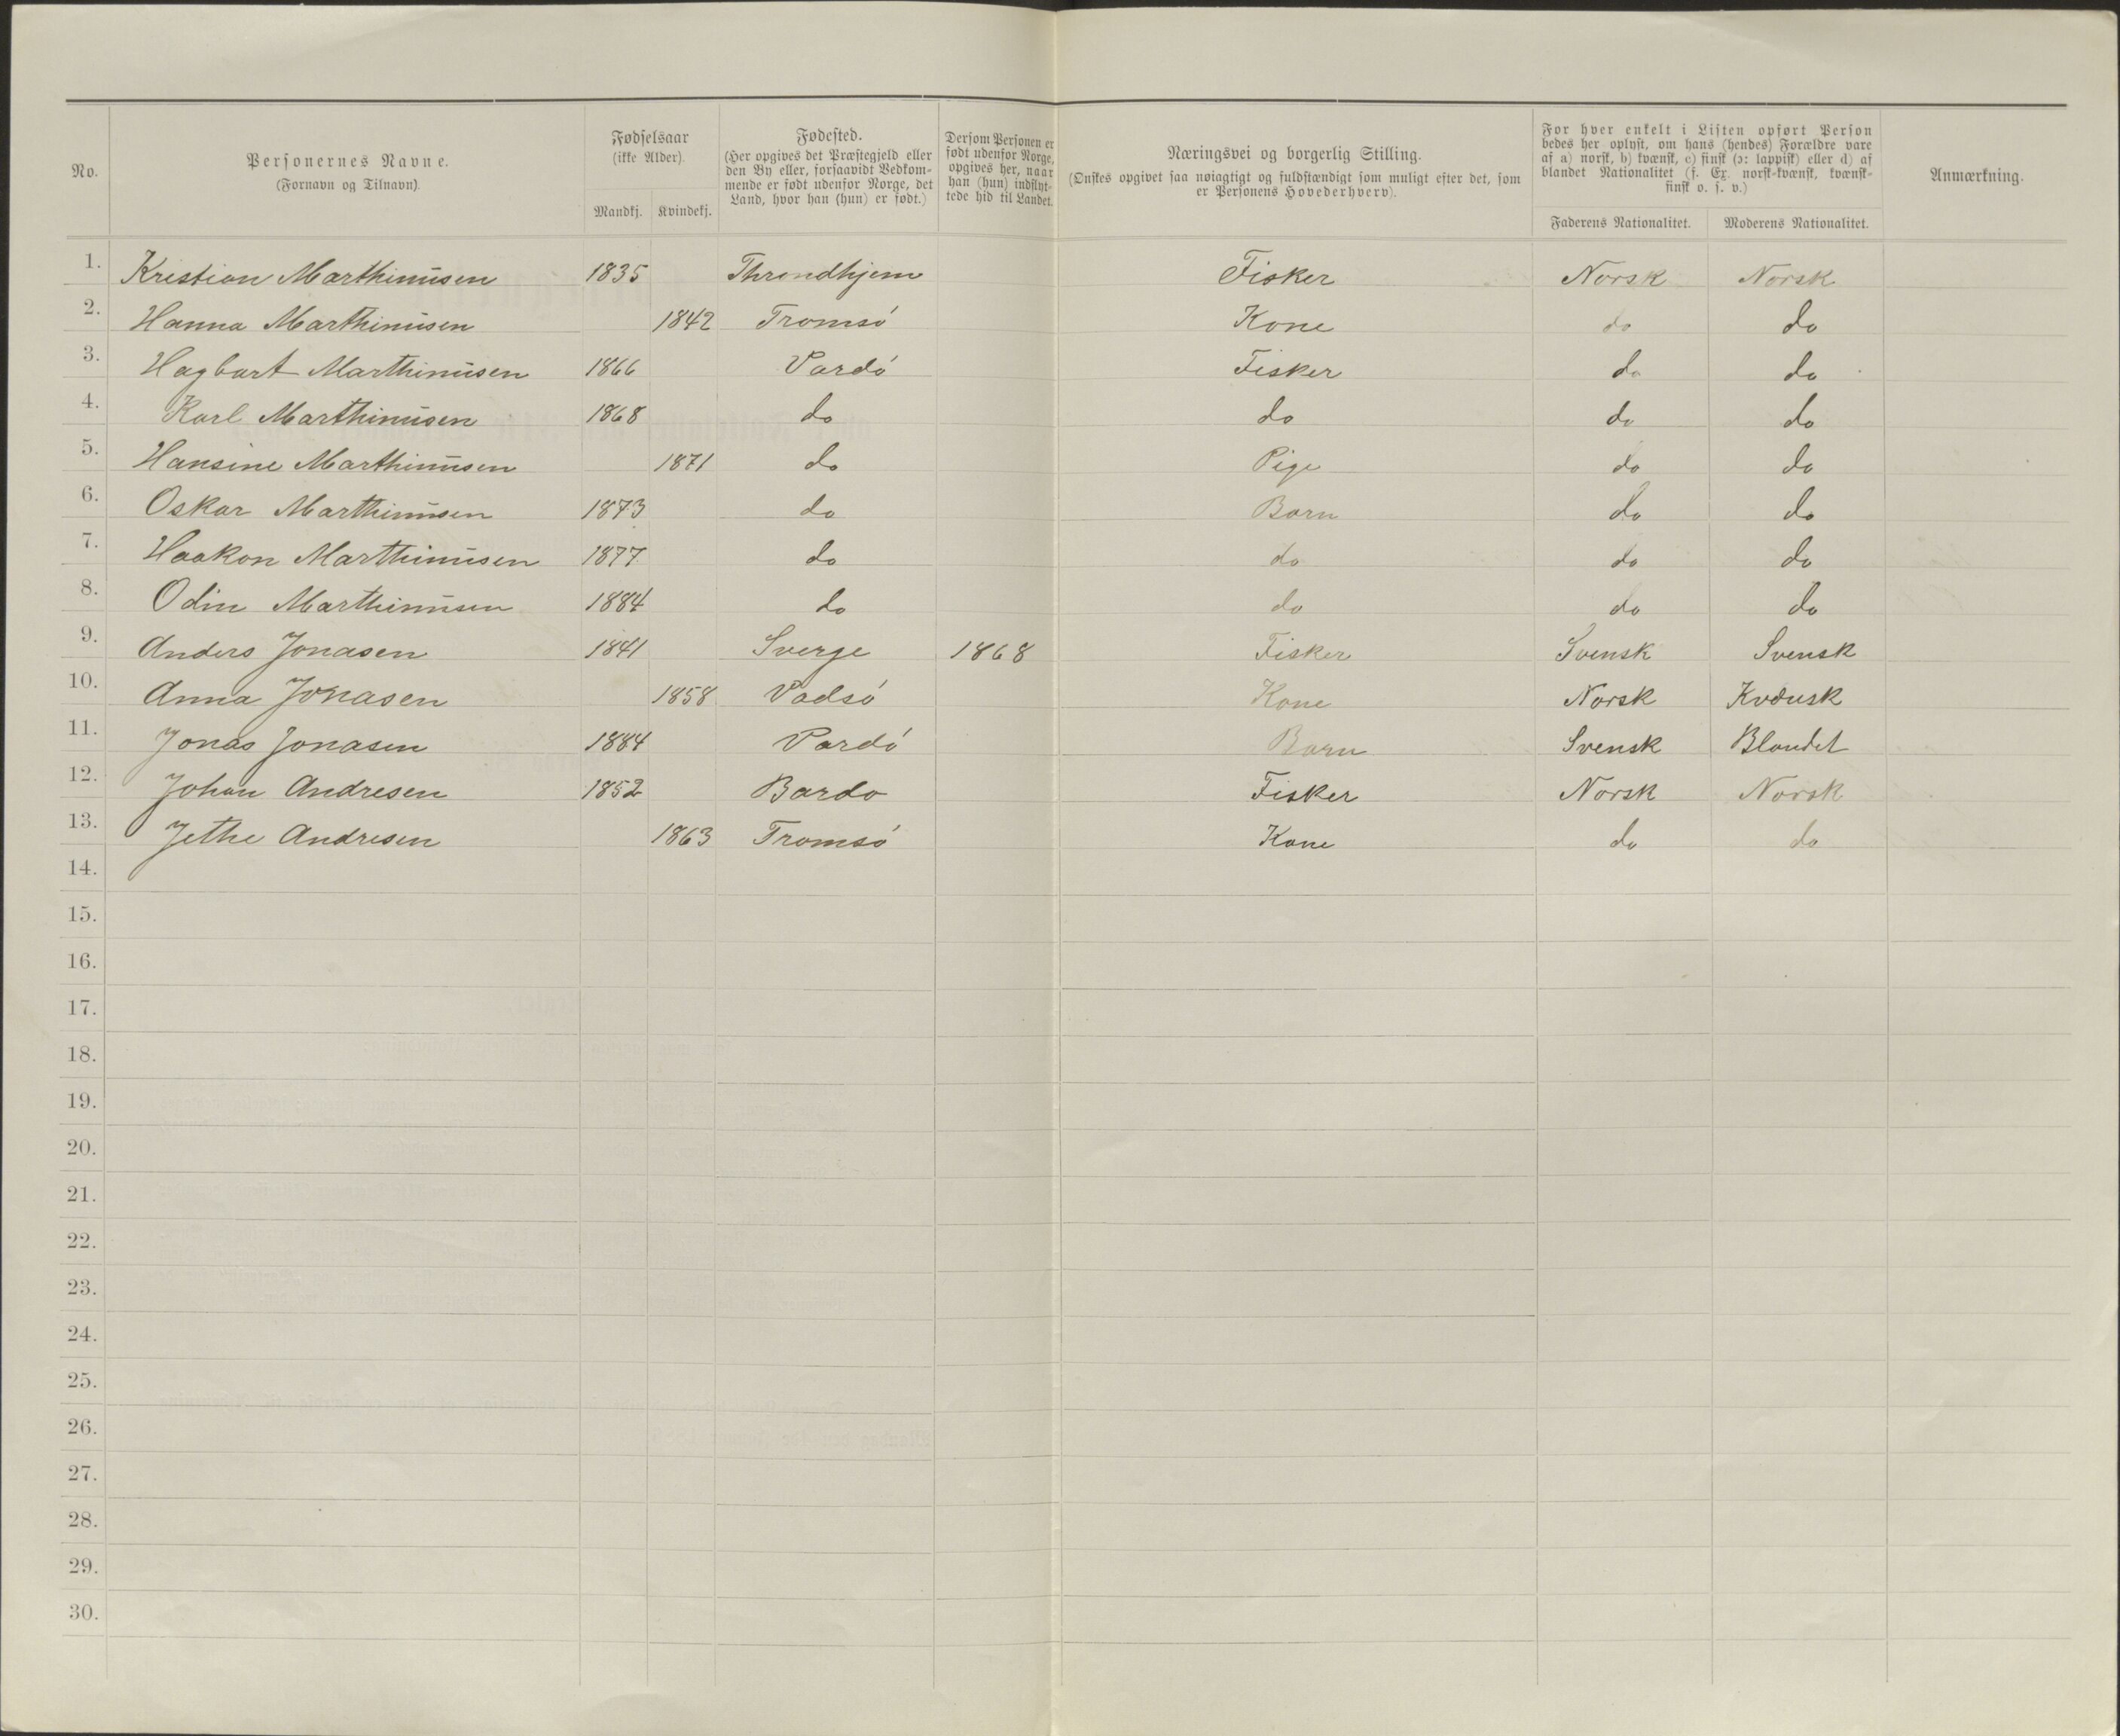 No.
Personernes Navne.
(Fornavn og Tilnavn).
Fødselsaar
(ikke Alder).
Mandkj. Kvindekj.
Fødested.
(Her opgives det Præstegjeld eller
den By eller, forsaavidt Vedkom-
mende er født udenfor Norge, det
Land, hvor han (hun) er født.)
Dersom Personen er
født udenfor Norge,
opgives her, naar
han (hun) indflyt-
tede hid til Landet.
Næringsvei og borgerlig Stilling.
(Ønskes opgivet saa nøiagtigt og fuldstændigt som muligt efter det, som
er Personens Hovederhverv).
For hver enkelt i Listen opført Person
bedes her oplyst, om hans (hendes) Forældre vare
af a) norsk, b) kvænsk, c) finsk (ɔ: lappisk) eller d) af
blandet Nationalitet (f. Ex. norsk-kvænsk, kvænsk-
finsk o. s. v.)
Faderens Nationalitet. Moderens Nationalitet.
Anmærkning.
1. Kristian Marthinusen 1835 Throndhjem Fisker Norsk Norsk
2. Hanna Marthinusen 1842 Tromsó Kone do do
3. Hagbart Marthinusen 1866 Vardó Fisker do do
4. Karl Marthinusen 1868 do do do do
5. Hansine Marthinusen 1871 do Pige do do
6. Oskar Marthinusen 1873 do Barn do do
7. Haakon Marthinusen 1877 do do do do
8. Odin Marthinusen 1884 do do do do
9. Anders Jonasen 1841 Sverge 1868 Fisker Svensk Svensk
10. Anna Jonasen 1858 Vadsó Kone Norsk Kvænsk
11. Jonas Jonasen 1884 Vardó Barn Svensk Blandet
12. Johan Andresen 1852 Bardo Fisker Norsk Norsk
13. Jethe Andresen 1863 Tromsó Kone do do
14.
15.
16.
17.
18.
19.
20.
21.
22.
23.
24.
25.
26.
27.
28.
29.
30.